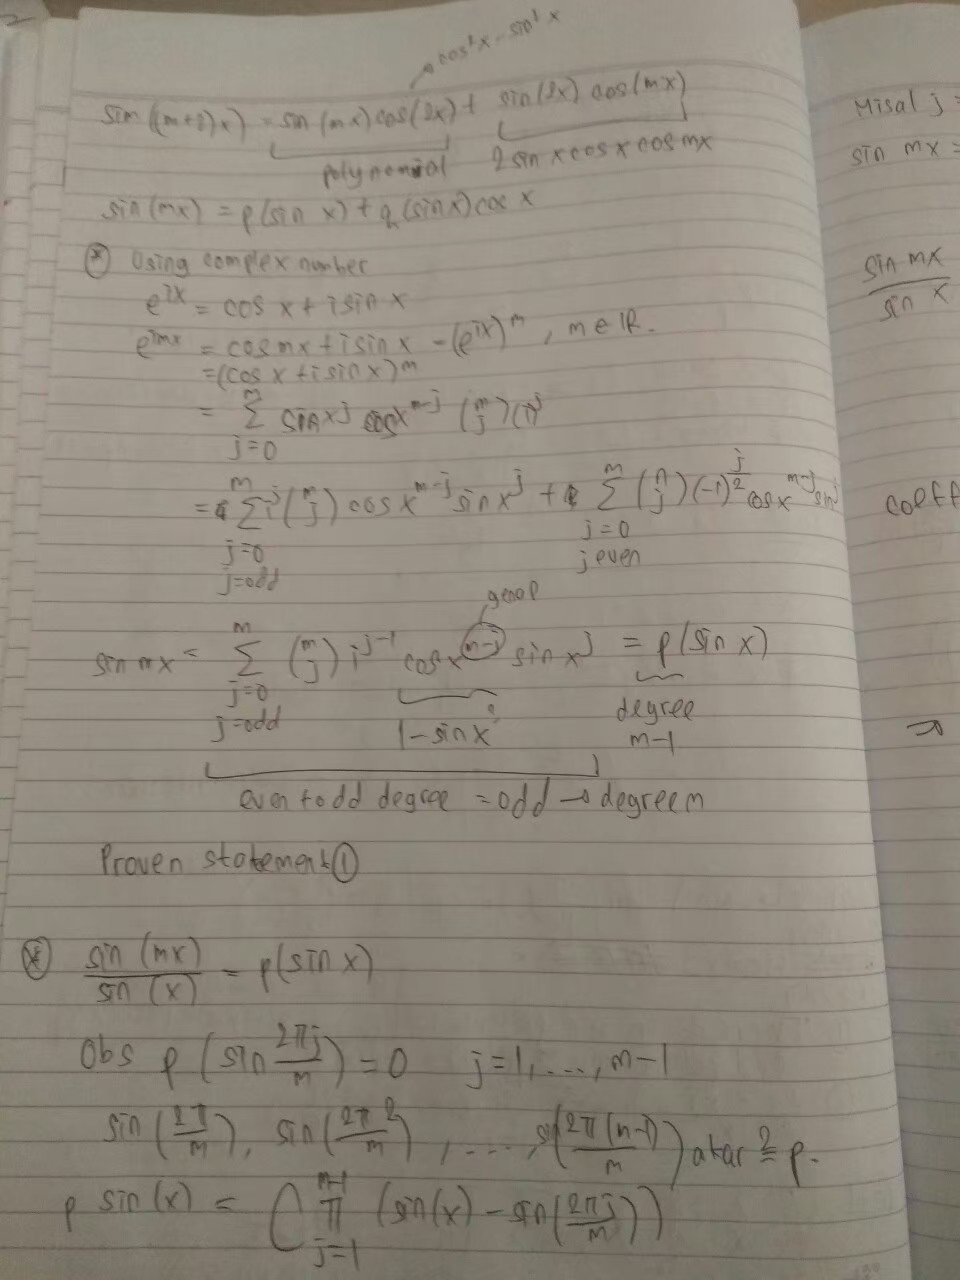 2
cos²x - sin²x
sin((m+2)x) = sin(mx)cos(2x) + sin(2x)cos(mx)
polynomial 2 sin x cos x cos mx
sin(mx) = p(sin x) + q(sin x) cos x
* Using complex number
e^ix = cos x + i sin x
e^imx = cos mx + i sin x = (e^ix)^m, m ∈ IR.
= (cos x + i sin x)^m
= Σ sin x^j cos x^m-j (m j) (i)^j
j=0
= Σ i^j (m j) cos x^m-j sin x^j + Σ (n j) (-1)^j/2 cos x^m-j sin^j
j=0 j=0
j=odd j even
genap
sin mx = Σ (m j) i^j-1 cos x^n-j sin x^j = p(sin x)
j=0
j=odd 1 - sin x² degree
m-1
even to odd degree = odd → degree m
Proven statement ①
* sin(mx)/sin(x) = p(sin x)
Obs p(sin 2πj/m) = 0 j=1,...,m-1
sin(2π/m), sin(2π2/m), ..., sin(2π(m-1)/m) akar² = p.
p sin(x) = C Π (sin(x) - sin(2πj/m))
m-1
j=1
Misal j =
sin mx =
sin mx
sin x
coeff
→